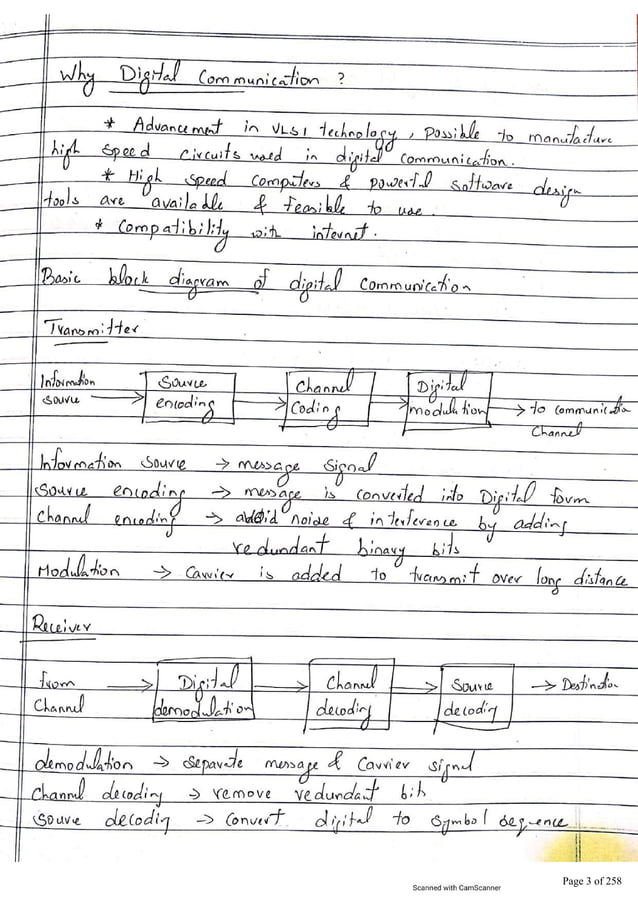 Why Digital Communication ?
* Advancement in VLSI technology, possible to manufacture
high speed circuits used in digital communication.
* High speed computers & powerful software design
tools are available & feasible to use.
* Compatibility with internet.
Basic block diagram of digital communication
Transmitter
Information source → Source encoding → Channel Coding → Digital modulation → to communication Channel
Information source → message signal
Source encoding → message is converted into Digital form
Channel encoding → avoid noise & interference by adding
redundant binary bits
Modulation → Carrier is added to transmit over long distance
Receiver
from Channel → Digital demodulation → Channel decoding → Source decoding → Destination
demodulation → separate message & Carrier signal
Channel decoding → remove redundant bits
Source decoding → Convert digital to symbol sequence
Page 3 of 258
Scanned with CamScanner